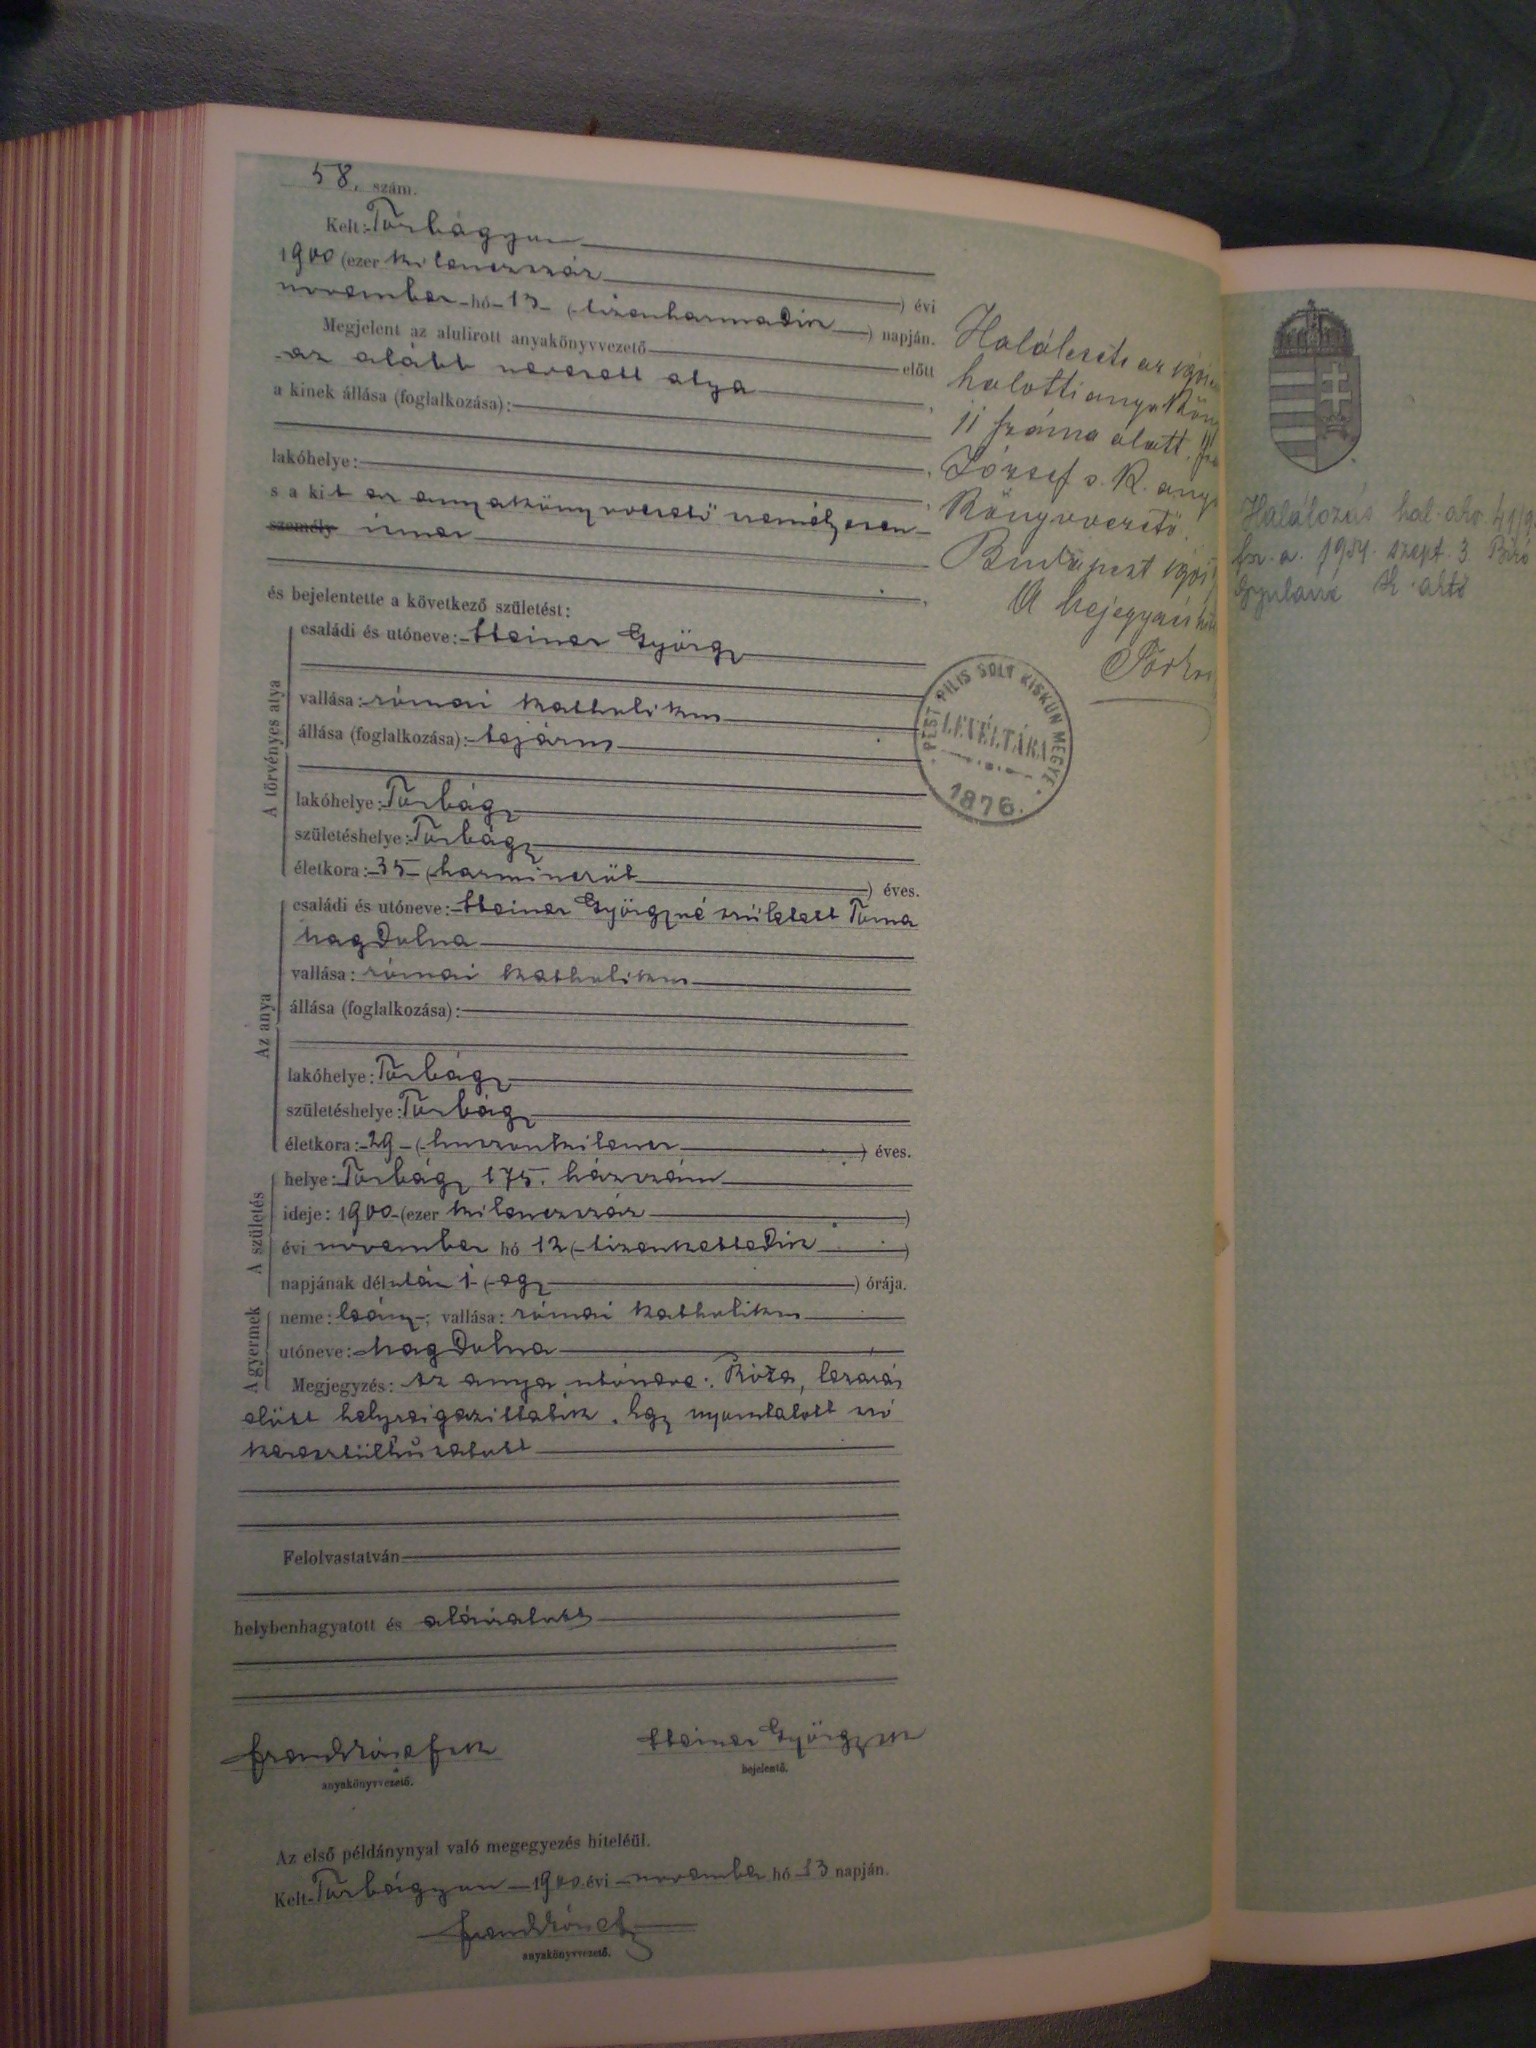 58. szám.
Kelt: Törbágyon
1900 (ezer kilenczszáz ) évi
november hó 13 (tizenharmadik ) napján.
Megjelent az alulirott anyakönyvvezető előtt
az alább nevezett atya
a kinek állása (foglalkozása):
lakóhelye:
s a kit az anyakönyvvezető személyesen
személy ismer
és bejelentette a következő születést:
A törvényes atya
családi és utóneve: Steiner György
vallása: római katholikus
állása (foglalkozása): tejárus
lakóhelye: Törbágy
születéshelye: Törbágy
életkora: 35 (harminczöt ) éves.
Az anya
családi és utóneve: Steiner Györgyné született
Magdolna
vallása: római katholikus
állása (foglalkozása):
lakóhelye: Törbágy
születéshelye: Törbágy
életkora: 29 (huszonkilencz ) éves.
A születés
helye: Törbágy 175. házszám
ideje: 1900 (ezer kilenczszáz )
évi november hó 12 (tizenkettedik )
napjának délután 1 (egy ) órája.
A gyermek
neme: leány; vallása: római katholikus
utóneve: Magdolna
Megjegyzés: Az anya utóneve: Róza, lezárás
előtt helyreigazittatik. Egy nyomtatott szó
keresztülhúzatott
Felolvastatván
helybenhagyatott és aláiratott
anyakönyvvezető.
Steiner György
bejelentő.
Az első példánynyal való megegyezés hiteléül.
Kelt Törbágyon 1900 évi november hó 13 napján.
anyakönyvvezető.
Halálesete az
halotti anyakönyv
11 száma alatt.
József s. k. any
könyvvezető.
Budapest
A bejegyzés
PEST PILIS SOLT KISKUN MEGYE
LEVÉLTÁRA
1876.
Halálozás hal. akv. 41/9
fsz. a. 1954. szept. 3 Biró
Gyuláné